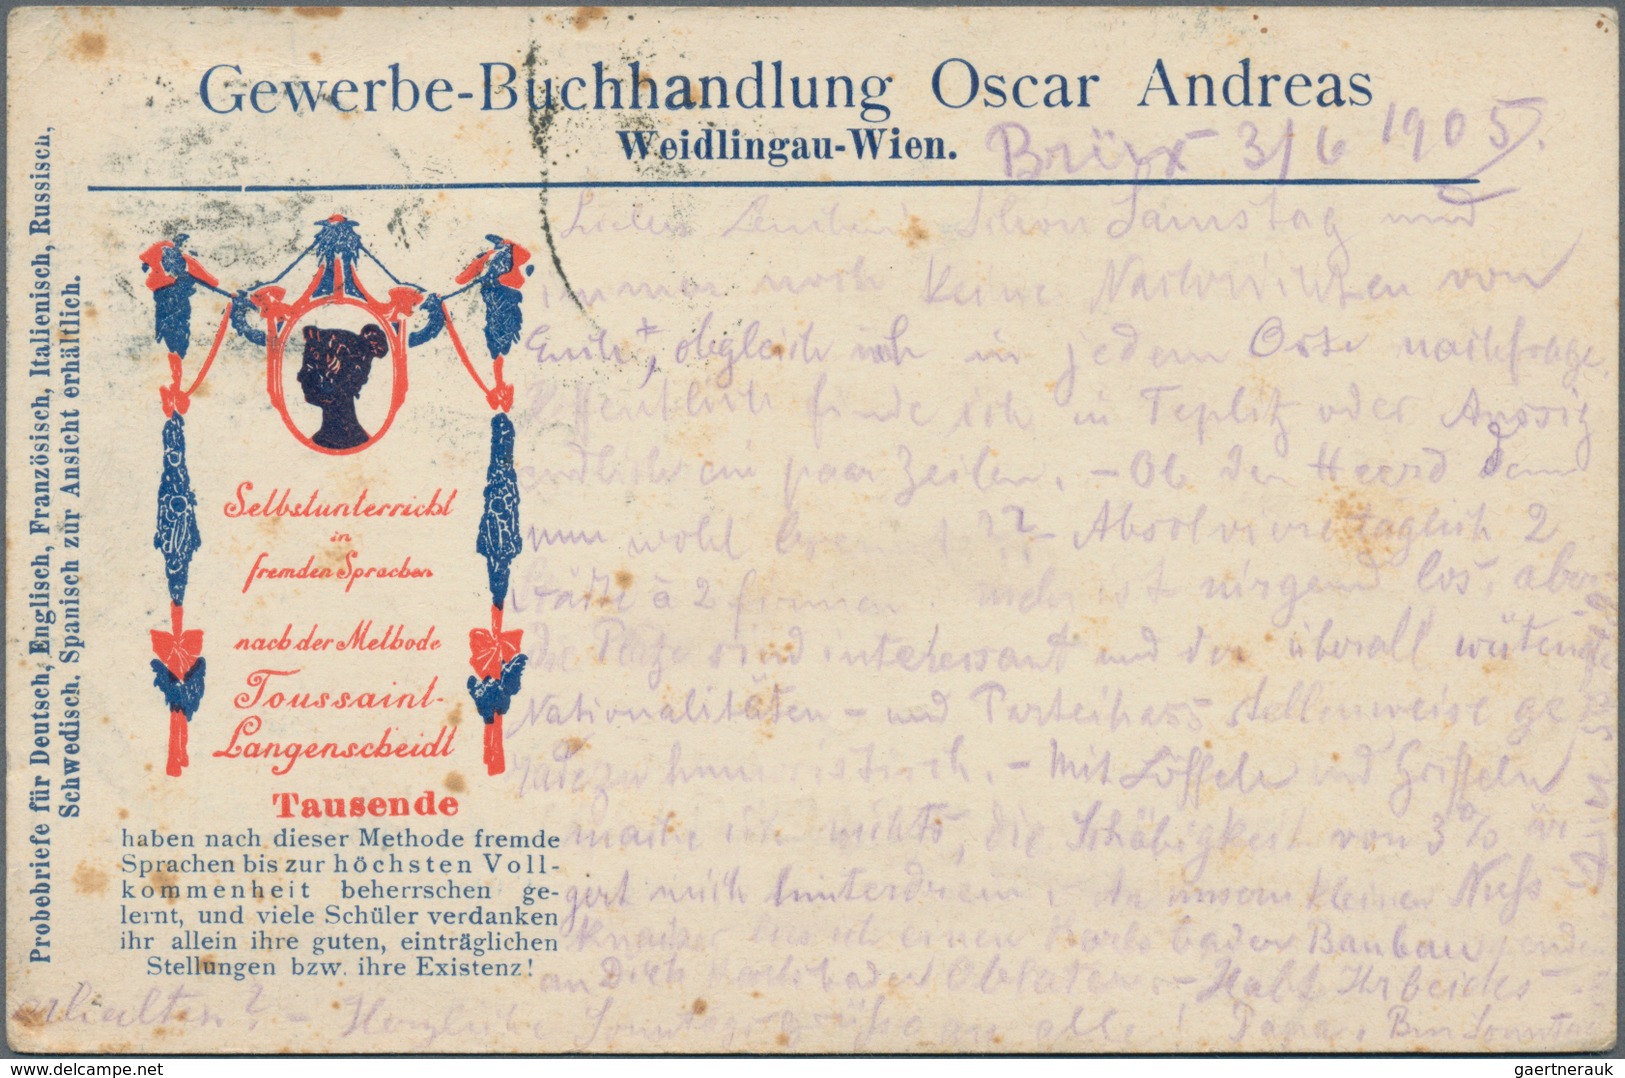 Gewerbe-Buchhandlung Oscar Andreas
Weidlingau-Wien.
Brüx 3/6 1905.
Probebriefe für Deutsch, Englisch, Französisch, Italienisch, Russisch,
Schwedisch, Spanisch zur Ansicht erhältlich.
Selbstunterricht
in
fremden Sprachen
nach der Methode
Toussaint-
Langenscheidt
Tausende
haben nach dieser Methode fremde
Sprachen bis zur höchsten Voll-
kommenheit beherrschen ge-
lernt, und viele Schüler verdanken
ihr allein ihre guten, einträglichen
Stellungen bzw. ihre Existenz!
Schon Samstag und
immer noch keine Nachrichten von
Euch, obgleich ich in jedem Orte nachfrage.
Hoffentlich finde ich in Teplitz oder Aussig
endlich ein paar Zeilen. - Ob der Heerd denn
nun wohl - Absolviere täglich 2
Städte à 2 Firmen. ist nirgend los, aber
die sind interessant und der überall wütende
Nationalitäten- und Parteihass stellenweise ge
radezu humoristisch. - Mit Löffeln und Griffeln
mache ich nichts, die Schäbigkeit von 3% är
gert mich hinterdrein. unserm kleinen Nuss
knacker liess ich einen Karlsbader senden
an Dich Karlsbader Oblaten. - Habt Ihr beides
erhalten? - Herzliche Sonntagsgrüsse an alle! Papa. Bin Sonntag
delcampe.net
gaertnerauk